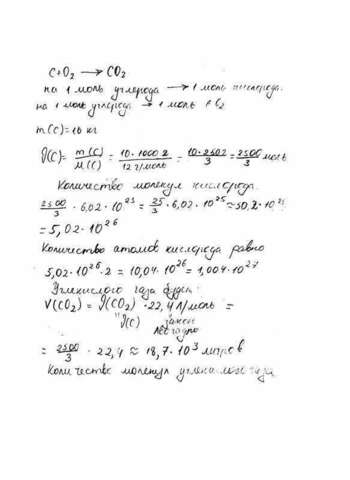 C+O₂ → CO₂
на 1 моль углерода → 1 моль кислорода.
на 1 моль углерода → 1 моль CO₂
m(C)=10 кг
ν(C)= m(C)/M(C) = 10·1000 г/12 г/моль = 10·250/3 = 2500/3 моль
Количество молекул кислорода.
2500/3 · 6,02·10²³ = 25/3 · 6,02·10²⁵ ≈ 50,2·10²⁵
=5,02·10²⁶
Количество атомов кислорода равно
5,02·10²⁶·2 = 10,04·10²⁶ = 1,004·10²⁷
Углекислого газа будет:
V(CO₂) = ν(CO₂)·22,4 л/моль =
"ν(C) закон
Авогадро
= 2500/3 · 22,4 ≈ 18,7·10³ литров
Количество молекул углекислого газа